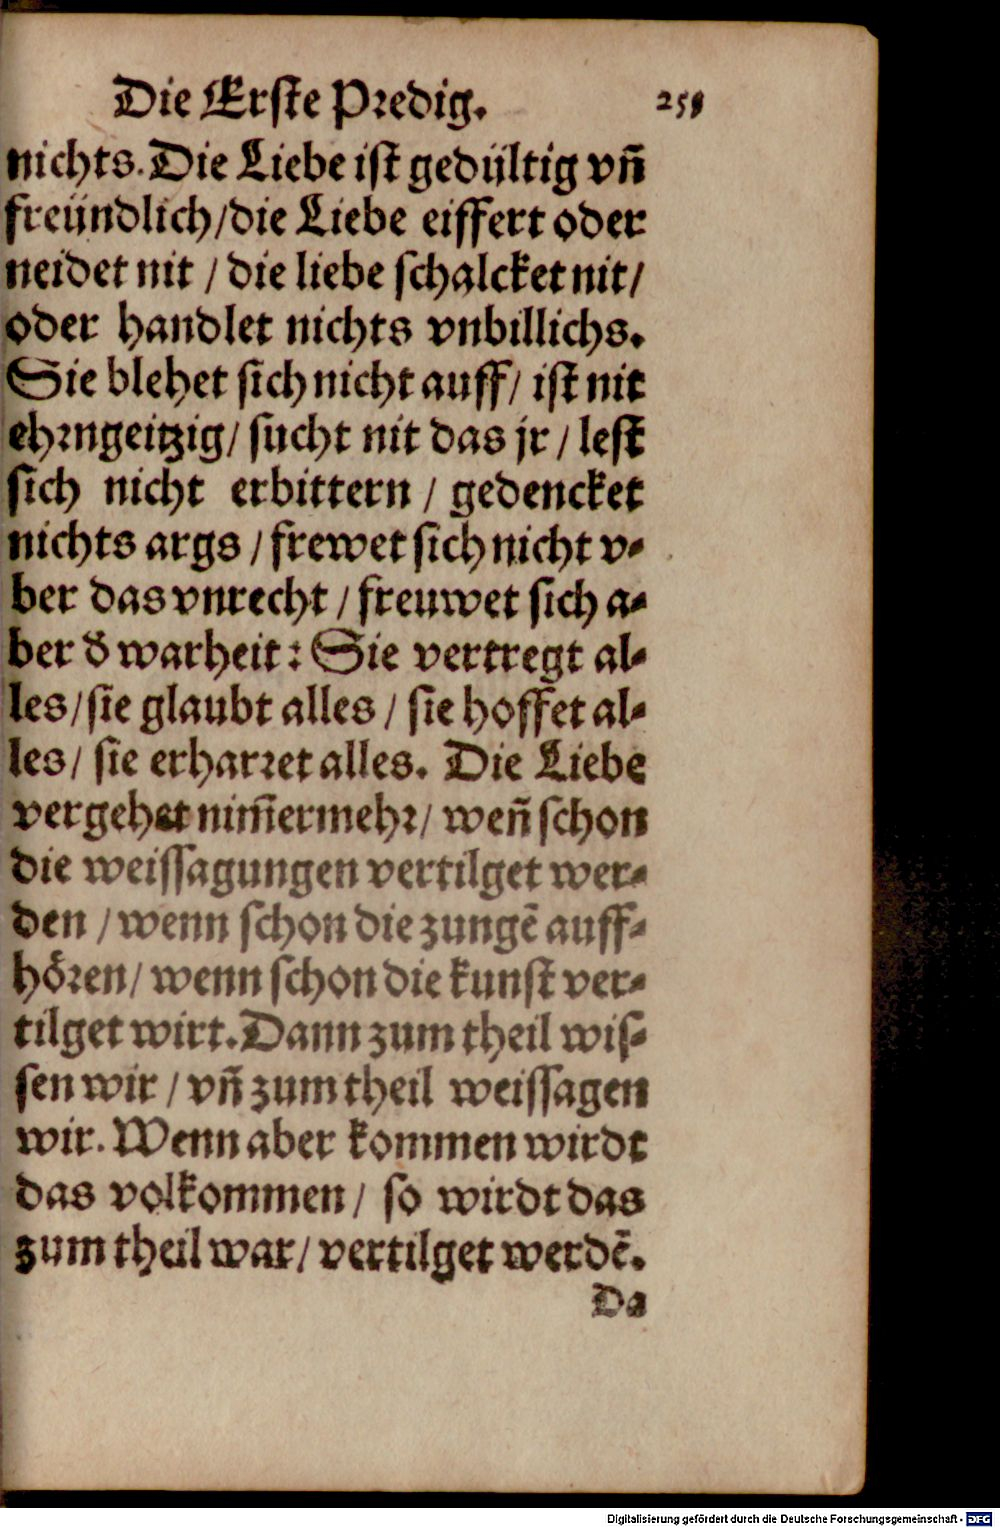 Die Erste Predig. 259
nichts. Die Liebe ist gedültig vñ
freündlich/die Liebe eiffert oder
neidet nit / die liebe schalcket nit/
oder handlet nichts vnbillichs.
Sie blehet sich nicht auff/ ist nit
ehrngeitzig/ sucht nit das jr / lest
sich nicht erbittern / gedencket
nichts args / frewet sich nicht v-
ber das vnrecht / freuwet sich a-
ber d̕ warheit: Sie vertregt al-
les/sie glaubt alles / sie hoffet al-
les/ sie erharret alles. Die Liebe
vergehet nim̃ermehr/ weñ schon
die weissagungen vertilget wer-
den / wenn schon die zungẽ auff-
hören/ wenn schon die kunst ver-
tilget wirt. Dann zum theil wis-
sen wir / vñ zum theil weissagen
wir. Wenn aber kommen wirdt
das volkommen/ so wirdt das
zum theil war/ vertilget werdẽ.
Da
Digitalisierung gefördert durch die Deutsche Forschungsgemeinschaft - DFG